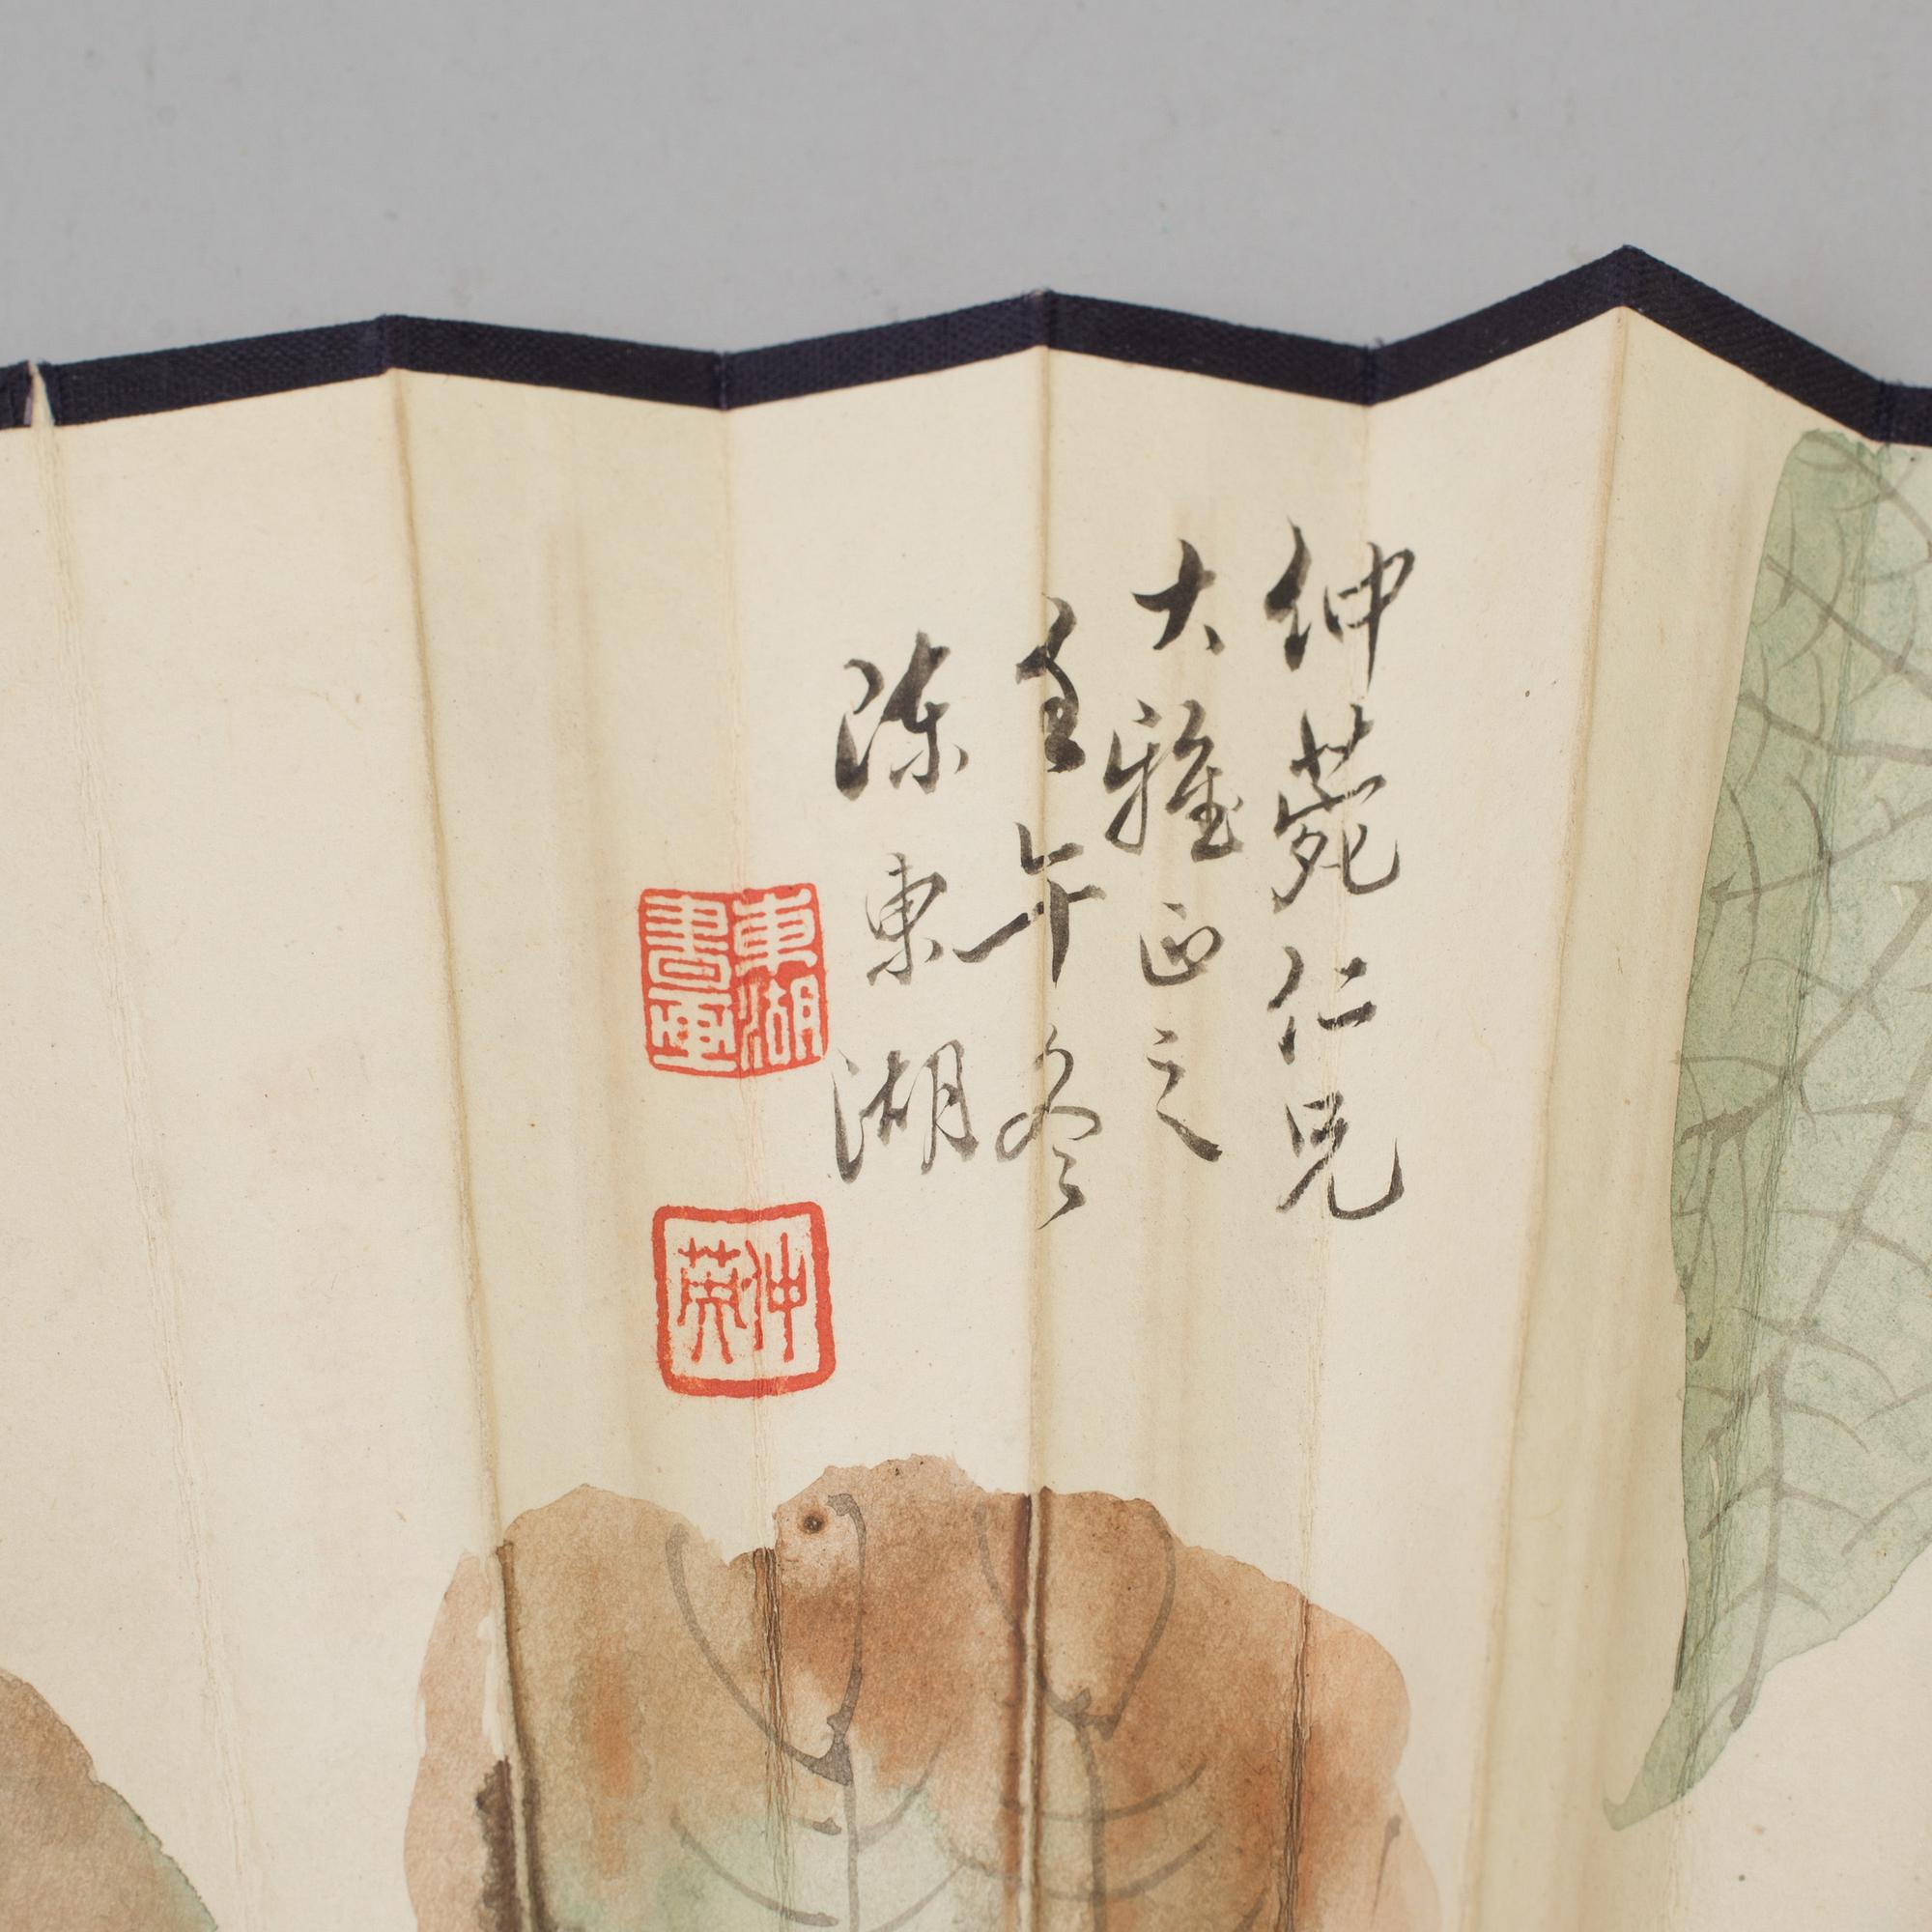 仲菀仁兄
大雅正之
壬午冬
陈東湖
東湖書畫
仲